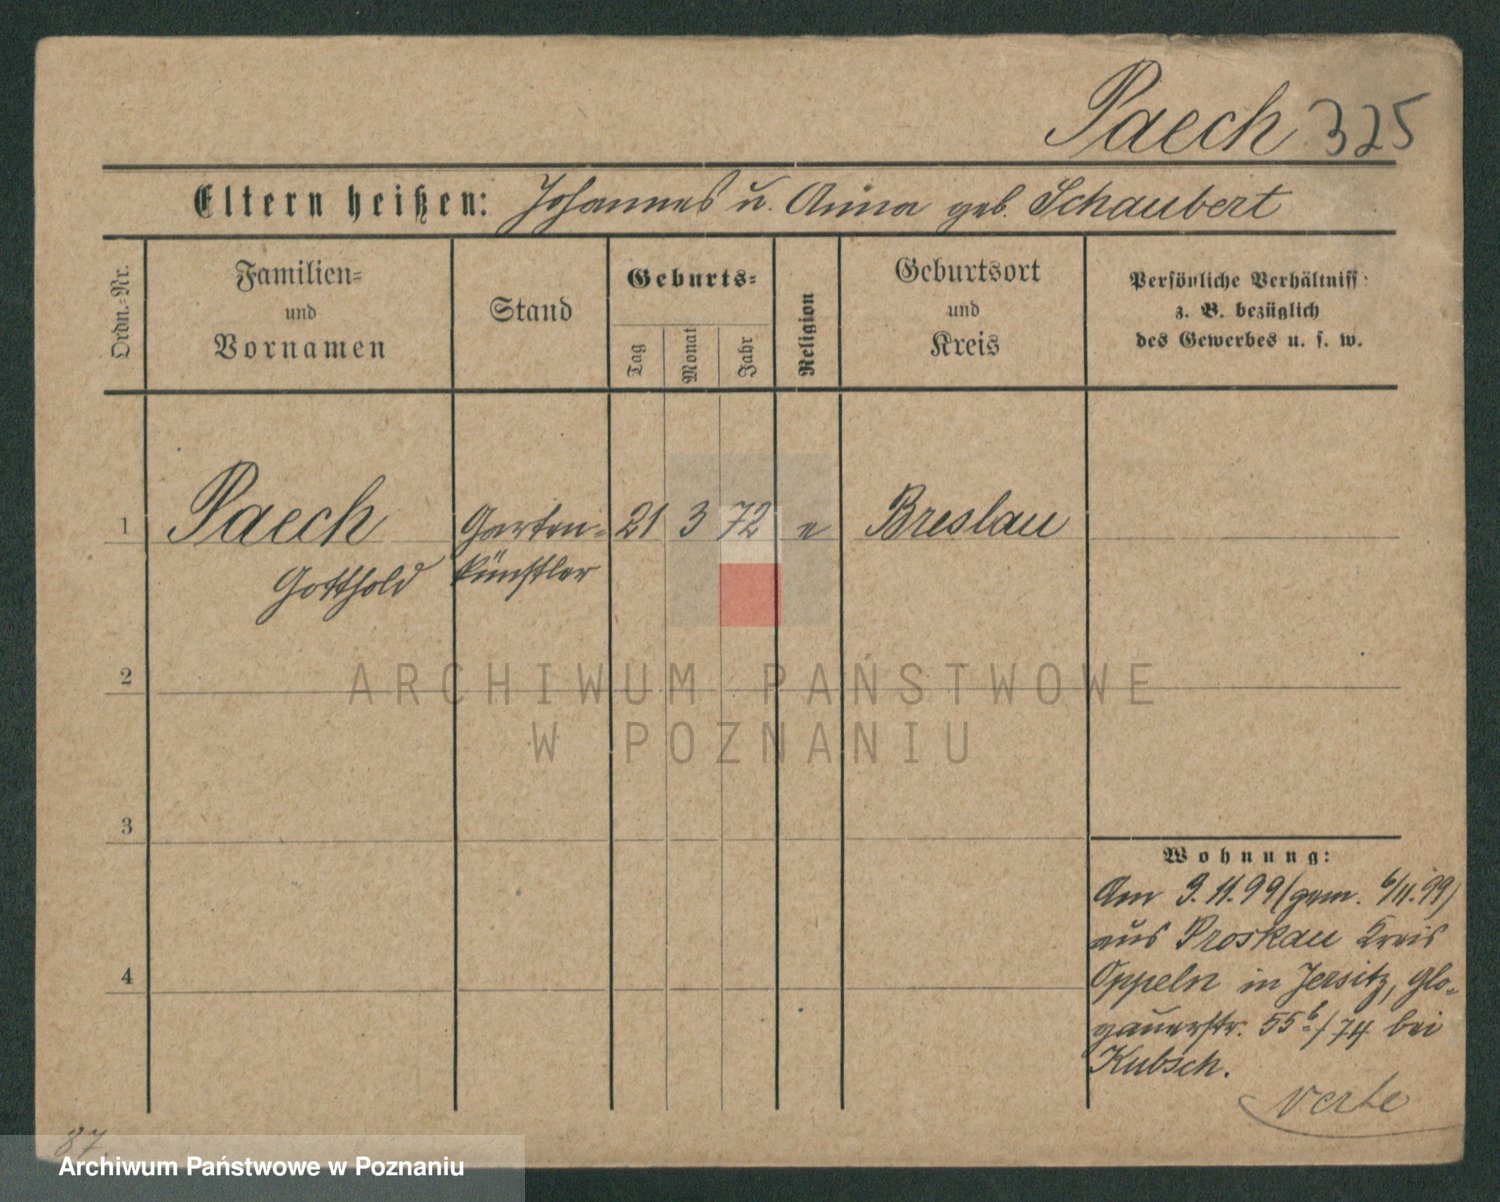 Paech 325
Eltern heißen: Johannes u. Anna geb. Schaubert
Ordn.=Nr.
Familien=
und
Vornamen
Stand
Geburts=
Tag
Monat
Jahr
Religion
Geburtsort
und
Kreis
Persönliche Verhältniss
z. B. bezüglich
des Gewerbes u. s. w.
1 Paech Garten= 21 3 72 e Breslau
Gotthold künstler
2
3
4
Wohnung:
Am 3.11.99 (gem. 6/11.99)
aus Proskau Kreis
Oppeln in Jersitz, Glo=
gauerstr. 55b/74 bei
Kubsch.
verte
87
ARCHIWUM PAŃSTWOWE
W POZNANIU
Archiwum Państwowe w Poznaniu